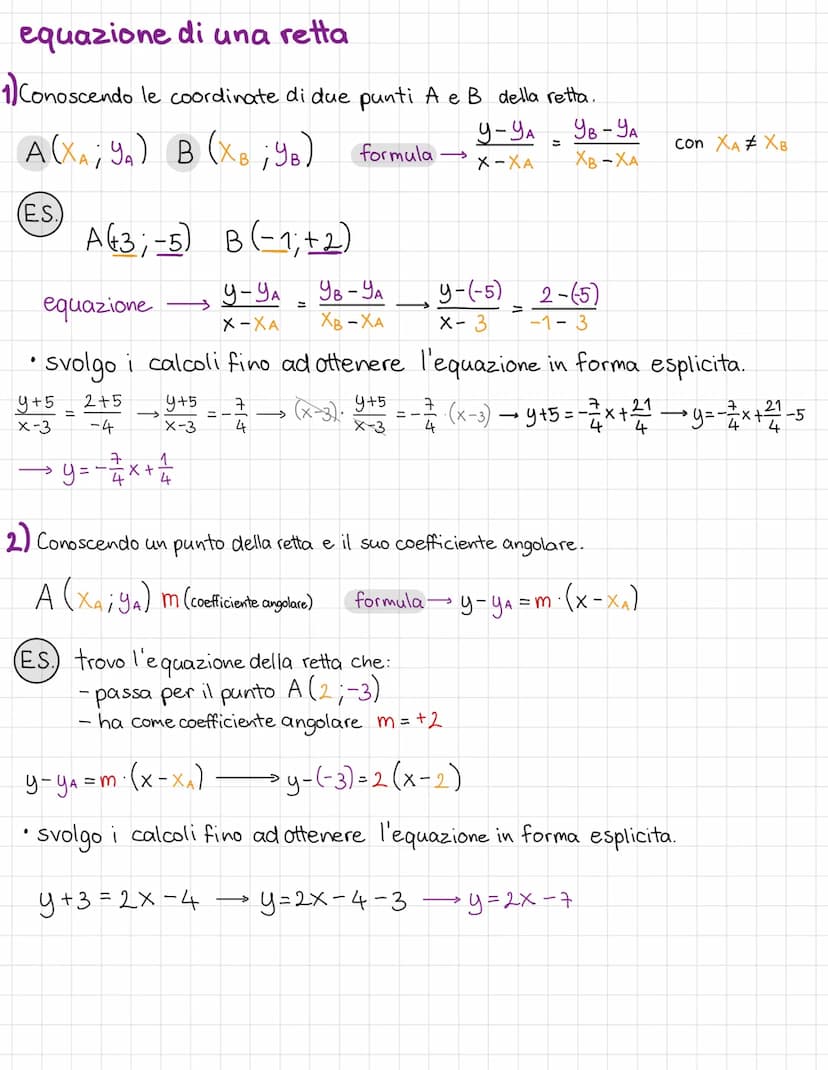 equazione di una retta
1) Conoscendo le coordinate di due punti A e B della retta.
A(xA; yA) B(xB; yB) formula → (y-yA)/(x-xA) = (yB-yA)/(xB-xA) con xA ≠ xB
ES.
A(+3; -5) B(-1; +2)
equazione → (y-yA)/(x-xA) = (yB-yA)/(xB-xA) → (y-(-5))/(x-3) = (2-(-5))/(-1-3)
• svolgo i calcoli fino ad ottenere l'equazione in forma esplicita.
(y+5)/(x-3) = (2+5)/(-4) → (y+5)/(x-3) = -7/4 → (x-3)· (y+5)/(x-3) = -7/4 ·(x-3) → y+5 = -7/4 x + 21/4 → y = -7/4 x + 21/4 - 5
→ y = -7/4 x + 1/4
2) Conoscendo un punto della retta e il suo coefficiente angolare.
A(xA; yA) m (coefficiente angolare) formula → y-yA = m·(x-xA)
ES. trovo l'equazione della retta che:
- passa per il punto A(2; -3)
- ha come coefficiente angolare m = +2
y-yA = m·(x-xA) → y-(-3) = 2(x-2)
• svolgo i calcoli fino ad ottenere l'equazione in forma esplicita.
y+3 = 2x-4 → y = 2x-4-3 → y = 2x-7